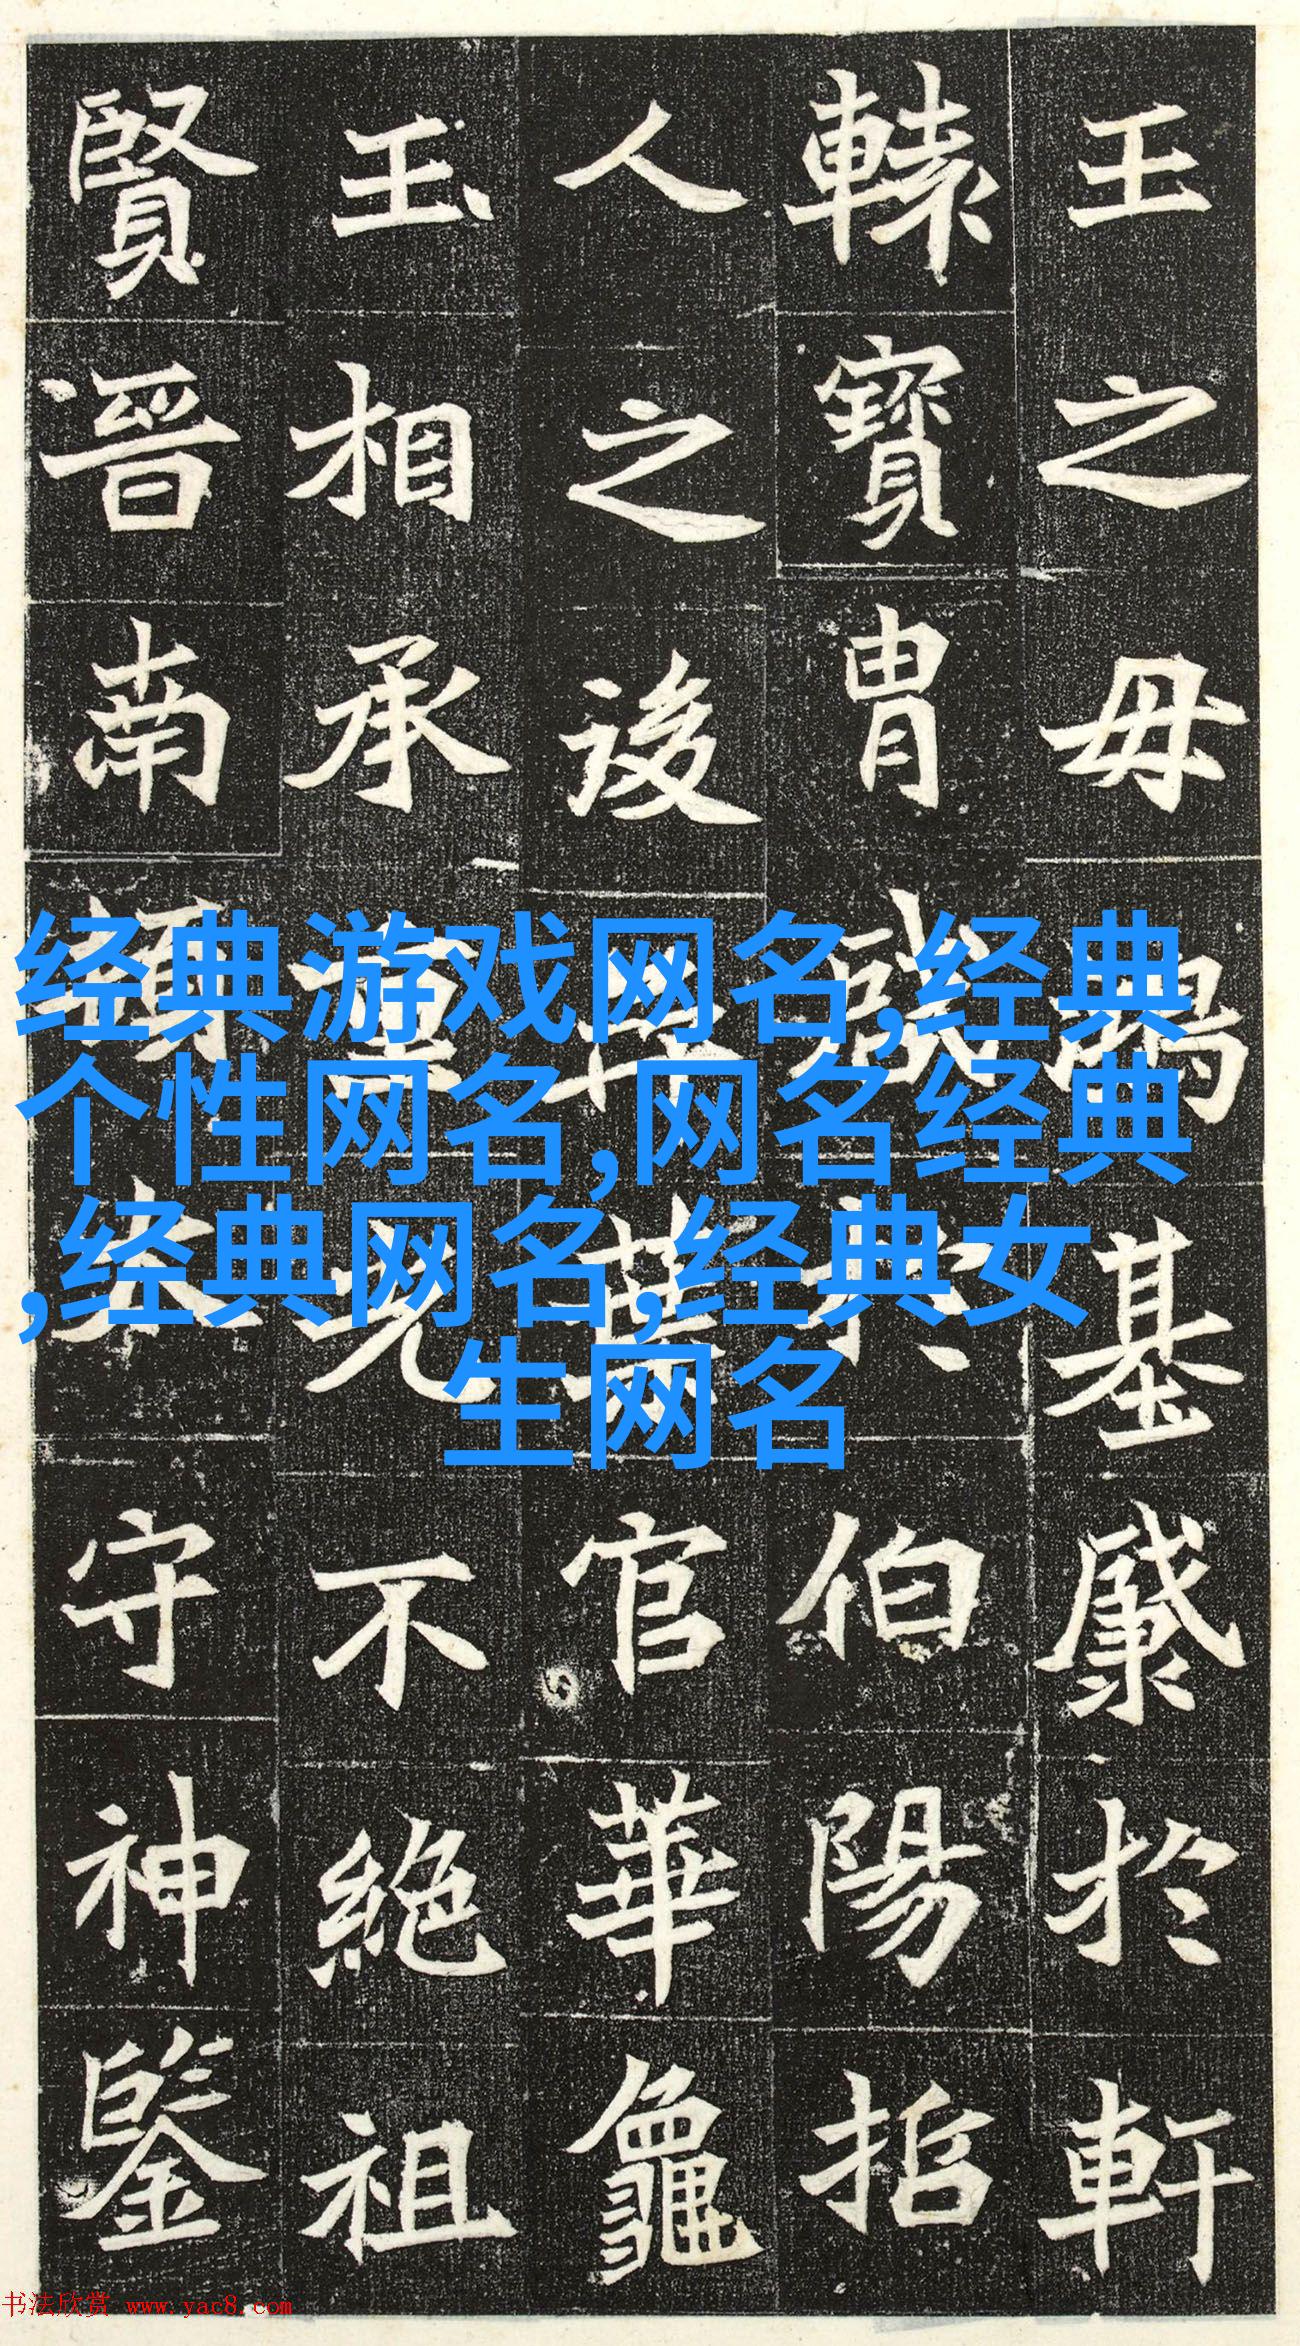 王之母鴻基於軒
轅寶胄伯陽指
人之後葉官華龜
玉相承重光不絕祖
賢晉南頓太守神鑒
经典游戏网名,经典
个性网名,网名经典
,经典网名,经典女
生网名
书法欣赏 www.yac8.com